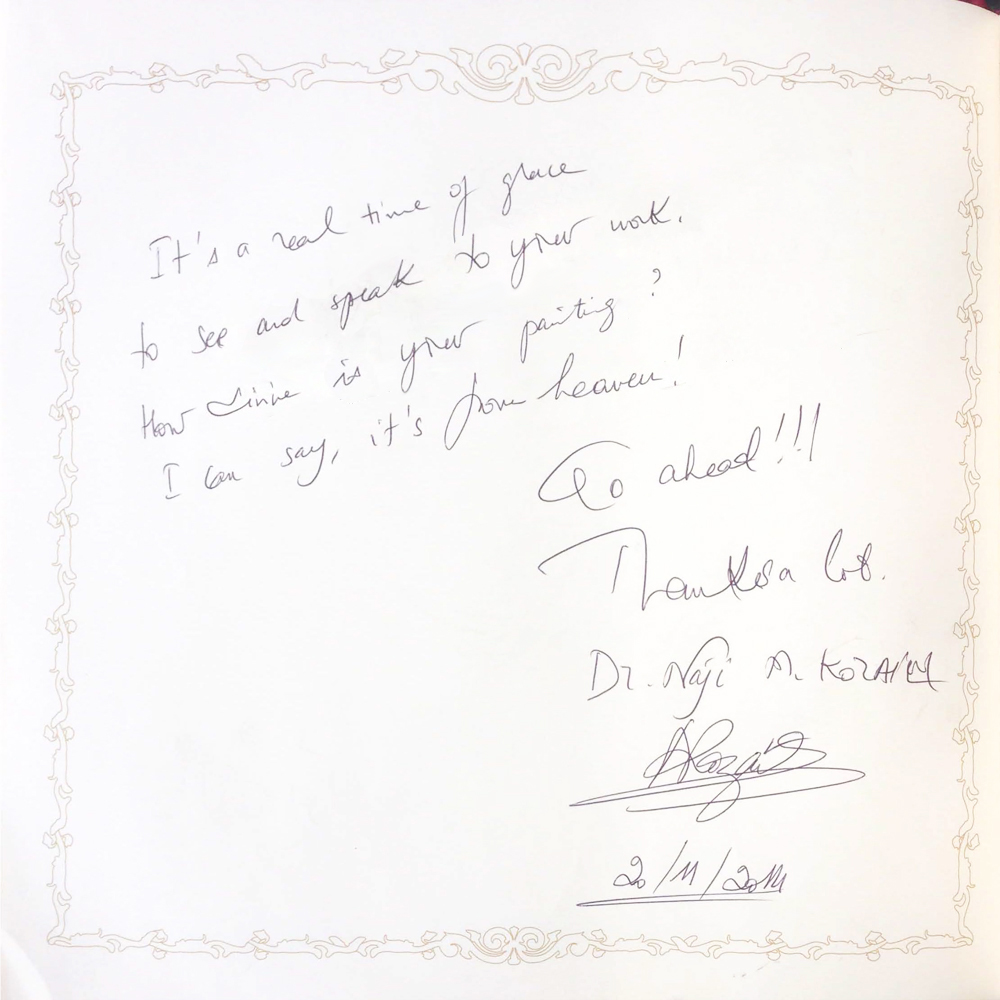 It's a real time of grace
to see and speak to your work.
How divine is your painting?
I can say, it's from heaven!
Go ahead!!!
Thanks a lot.
Dr. Naji M. KOZAILY
20/11/2014